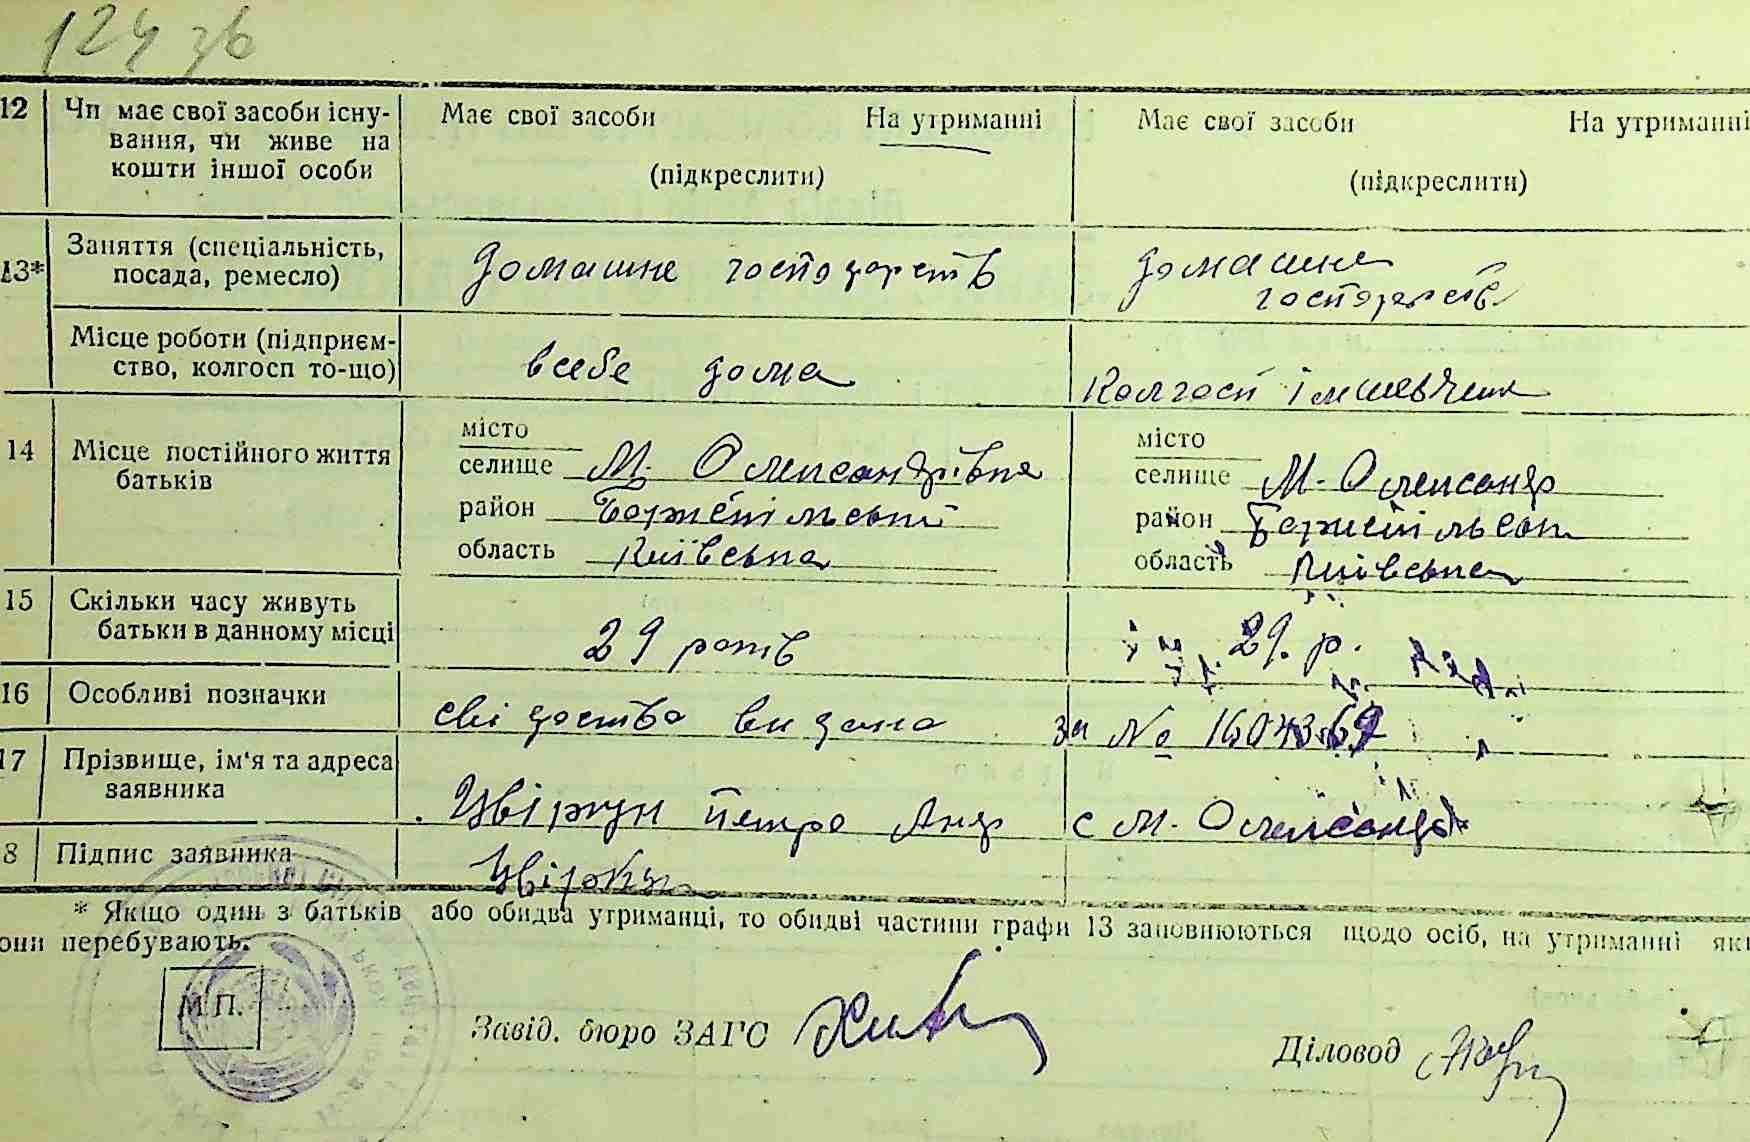 124 зв
12 Чи має свої засоби існу- Має свої засоби На утриманні Має свої засоби На утриманні
вання, чи живе на
кошти іншої особи (підкреслити) (підкреслити)
13* Заняття (спеціальність, домашне господарств домашне
посада, ремесло) господарств
Місце роботи (підприєм-
ство, колгосп то-що) всебе дома Колгосп ім шевченк
14 Місце постійного життя місто місто
батьків селище М. Олександрівка селище М. Олександр
район Бориспільський район Бориспільськ
область Київська область Київська
15 Скільки часу живуть
батьки в данному місці 29 років 29. р.
16 Особливі позначки свідоство видано за №
17 Прізвище, ім'я та адреса
заявника Цвіркун петро Андр с М. Олександр
8 Підпис заявника Цвіркун
* Якщо один з батьків або обидва утриманці, то обидві частини графи 13 заповнюються щодо осіб, на утриманні які
они перебувають.
М П.
Завід. бюро ЗАГС Діловод